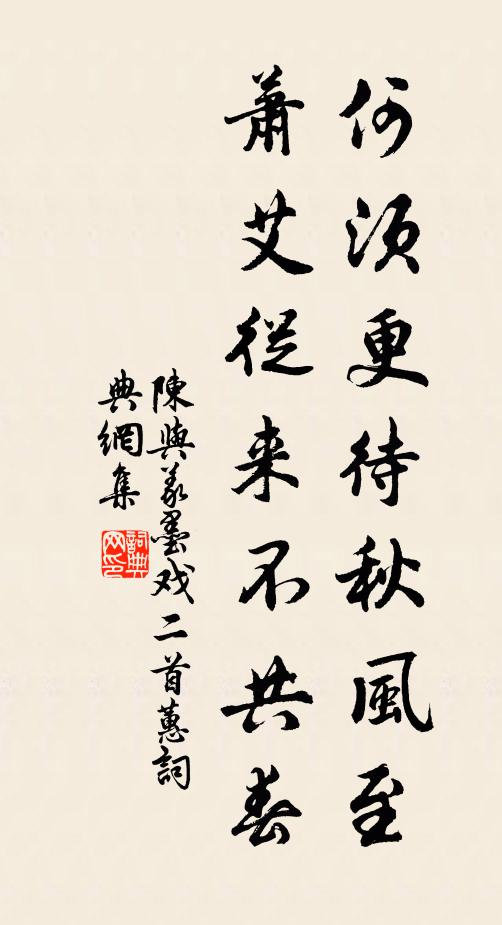 何須更待秋風至
蕭艾從来不共春
陳與義墨戏二首蕙詞
典網集
詞典
网印